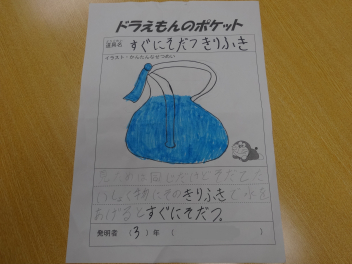 ドラえもんのポケット
道具名 すぐにそだつきりふき
イラスト・かんたんなせつめい
きりふきで水を
あげるとすぐにそだつ。
発明者 (3)年 ( )